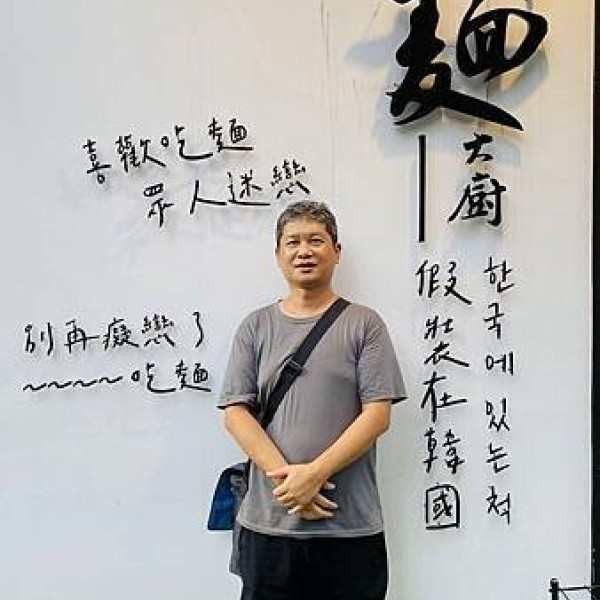 喜歡吃麵
眾人迷戀
別再癡戀了
~~~~吃麵
麵
大廚
假裝在韓國
한국에 있는 척